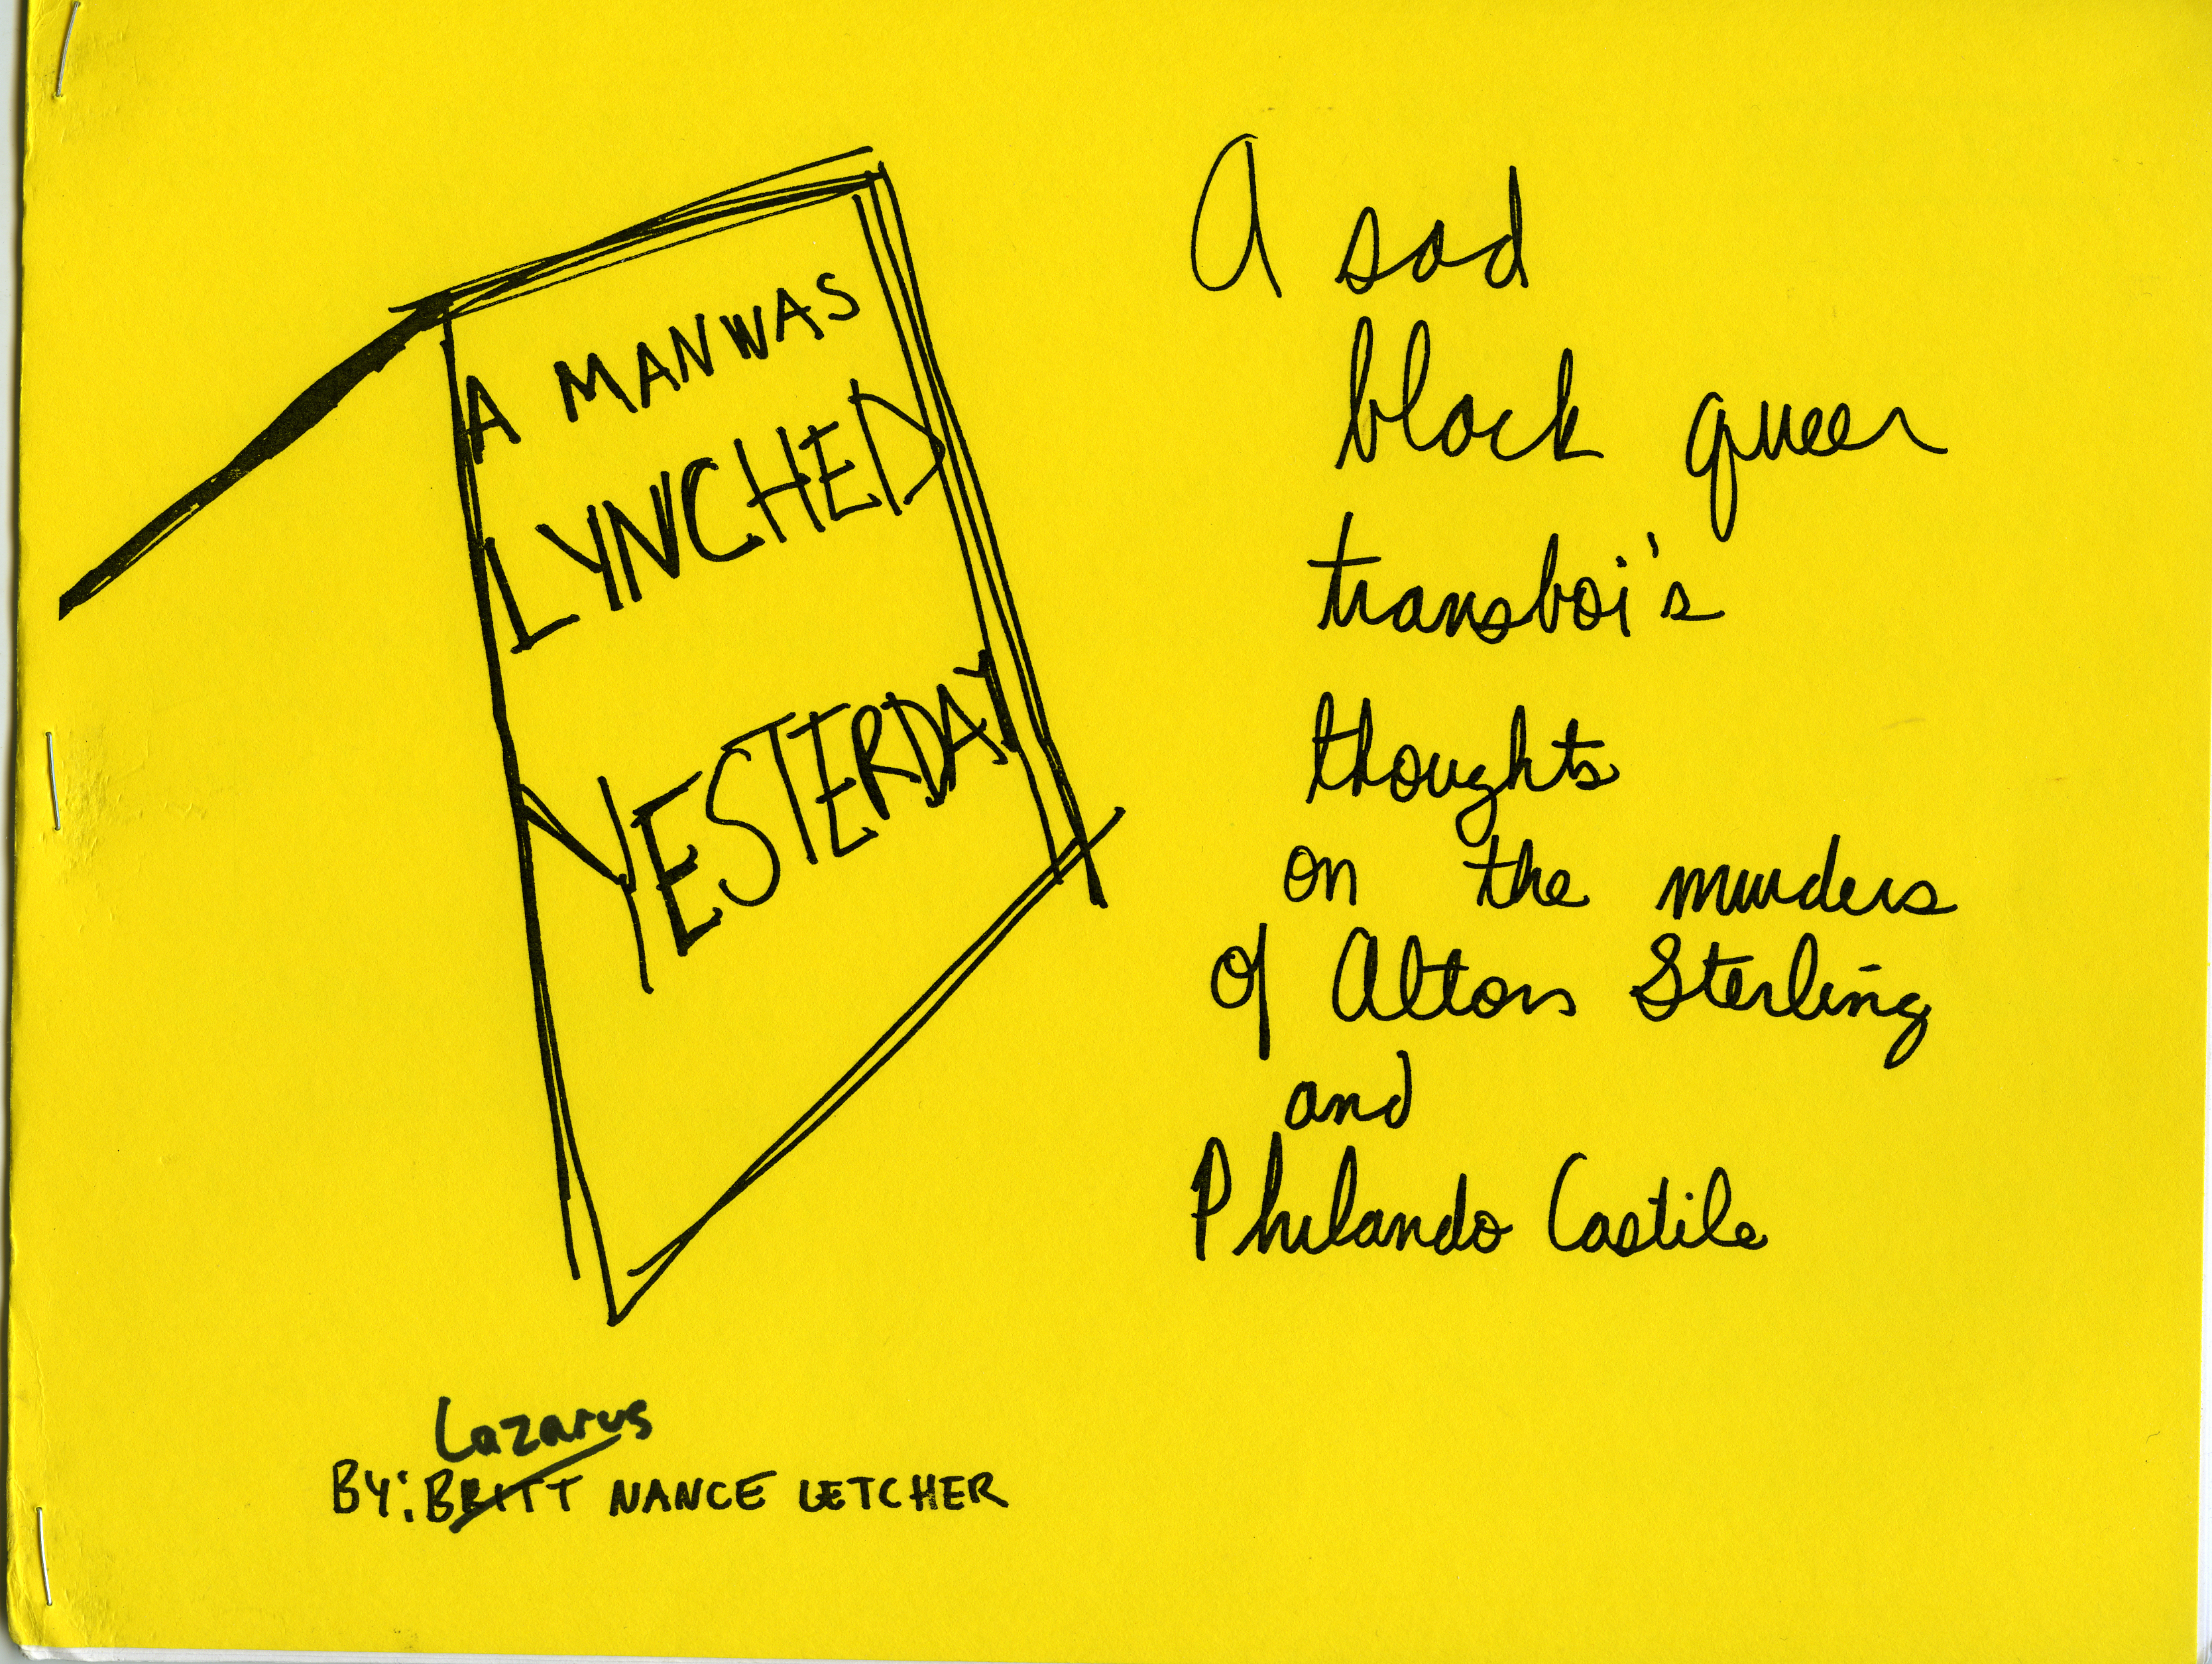 A MAN WAS
LYNCHED
YESTERDAY
A sad
black queer
transboi's
thoughts
on the murders
of Alton Sterling
and
Philando Castile
Lazarus
BY: BRITT NANCE LETCHER